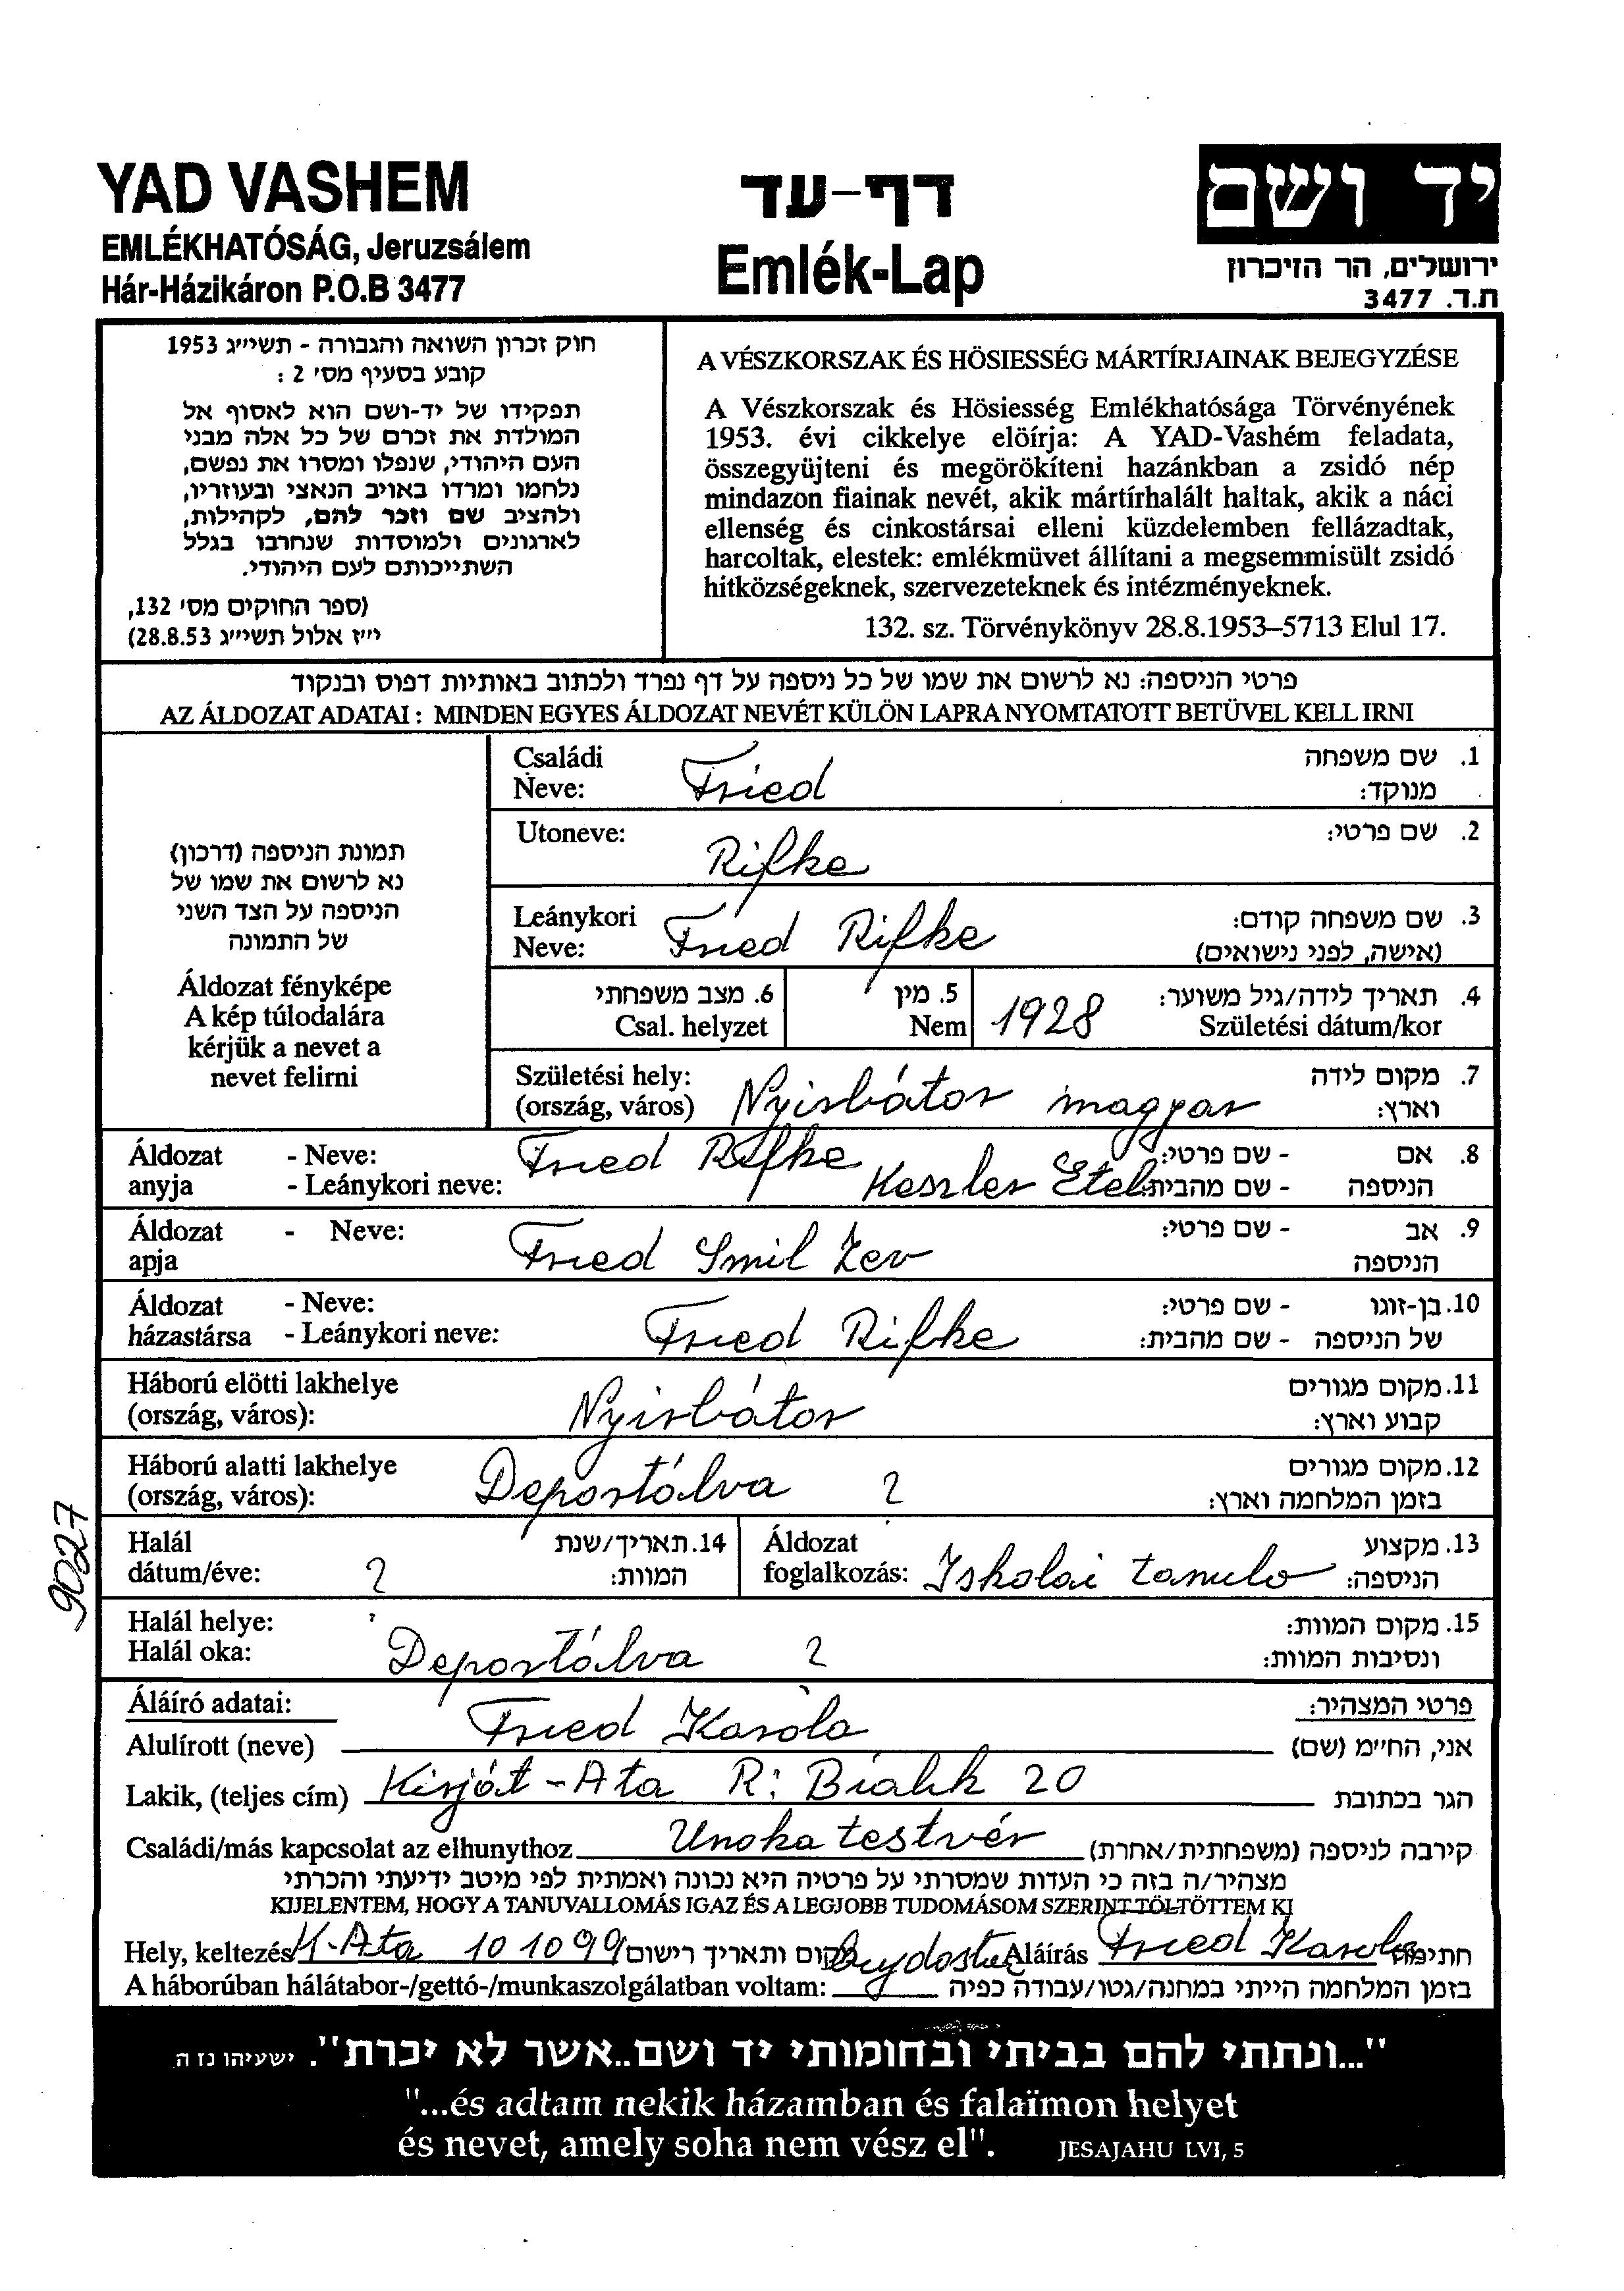 YAD VASHEM
EMLÉKHATÓSÁG, Jeruzsálem
Hár-Házikáron P.O.B 3477
דף-עד
Emlék-Lap
יד ושם
ירושלים, הר הזיכרון
ת.ד. 3477
חוק זכרון השואה והגבורה - תשי״ג 1953
קובע בסעיף מס׳ 2 :
תפקידו של יד-ושם הוא לאסוף אל
המולדת את זכרם של כל אלה מבני
העם היהודי, שנפלו ומסרו את נפשם,
נלחמו ומרדו באויב הנאצי ובעוזריו,
ולהציב שם וזכר להם, לקהילות,
לארגונים ולמוסדות שנחרבו בגלל
השתייכותם לעם היהודי.
(ספר החוקים מס׳ 132,
י״ז אלול תשי״ג 28.8.53)
A VÉSZKORSZAK ÉS HÖSIESSÉG MÁRTÍRJAINAK BEJEGYZÉSE
A Vészkorszak és Hösiesség Emlékhatósága Törvényének
1953. évi cikkelye elöírja: A YAD-Vashém feladata,
összegyüjteni és megörökíteni hazánkban a zsidó nép
mindazon fiainak nevét, akik mártírhalált haltak, akik a náci
ellenség és cinkostársai elleni küzdelemben fellázadtak,
harcoltak, elestek: emlékmüvet állítani a megsemmisült zsidó
hitközségeknek, szervezeteknek és intézményeknek.
132. sz. Törvénykönyv 28.8.1953–5713 Elul 17.
פרטי הניספה: נא לרשום את שמו של כל ניספה על דף נפרד ולכתוב באותיות דפוס ובנקוד
AZ ÁLDOZAT ADATAI : MINDEN EGYES ÁLDOZAT NEVÉT KÜLÖN LAPRA NYOMTATOTT BETÜVEL KELL IRNI
תמונת הניספה (דרכון)
נא לרשום את שמו של
הניספה על הצד השני
של התמונה
Áldozat fényképe
A kép túlodalára
kérjük a nevet a
nevet felirni
Családi Fried 1. שם משפחה
Neve: מנוקד:
Utoneve: Rifke 2. שם פרטי:
Leánykori Fried Rifke 3. שם משפחה קודם:
Neve: (אישה, לפני נישואים)
6. מצב משפחתי 5. מין 1928 4. תאריך לידה/גיל משוער:
Csal. helyzet Nem Születési dátum/kor
Születési hely: Nyirbátor magyar 7. מקום לידה
(ország, város) וארץ:
Áldozat - Neve: Fried Rifke 8. אם - שם פרטי:
anyja - Leánykori neve: Keszler Etel הניספה - שם מהבית:
Áldozat - Neve: Fried Smil Zev 9. אב - שם פרטי:
apja הניספה
Áldozat - Neve: Fried Rifke 10. בן-זוגו - שם פרטי:
házastársa - Leánykori neve: של הניספה - שם מהבית:
Háború elötti lakhelye Nyirbátor 11. מקום מגורים
(ország, város): קבוע וארץ:
Háború alatti lakhelye Deportálva ? 12. מקום מגורים
(ország, város): בזמן המלחמה וארץ:
Halál ? 14. תאריך/שנת
dátum/éve: המוות:
Áldozat Iskolai tanulo 13. מקצוע
foglalkozás: הניספה:
Halál helye: Deportálva ? 15. מקום המוות:
Halál oka: ונסיבות המוות:
Áláíró adatai: פרטי המצהיר:
Alulírott (neve) Fried Karola אני, הח״מ (שם)
Lakik, (teljes cím) Kirját-Ata R: Bialik 20 הגר בכתובת
Családi/más kapcsolat az elhunythoz Unoka testvér קירבה לניספה (משפחתית/אחרת)
מצהיר/ה בזה כי העדות שמסרתי על פרטיה היא נכונה ואמתית לפי מיטב ידיעתי והכרתי
KIJELENTEM, HOGY A TANUVALLOMÁS IGAZ ÉS A LEGJOBB TUDOMÁSOM SZERINT TÖLTÖTTEM KI
Hely, keltezés K-Ata 10 10 99 מקום ותאריך רישום Aláírás Fried Karola חתימה
A háborúban hálátabor-/gettó-/munkaszolgálatban voltam: בזמן המלחמה הייתי במחנה/גטו/עבודה כפיה
"...ונתתי להם בביתי ובחומותי יד ושם..אשר לא יכרת". ישעיהו נז ה
"...és adtam nekik házamban és falaïmon helyet
és nevet, amely soha nem vész el". JESAJAHU LVI, 5
9027